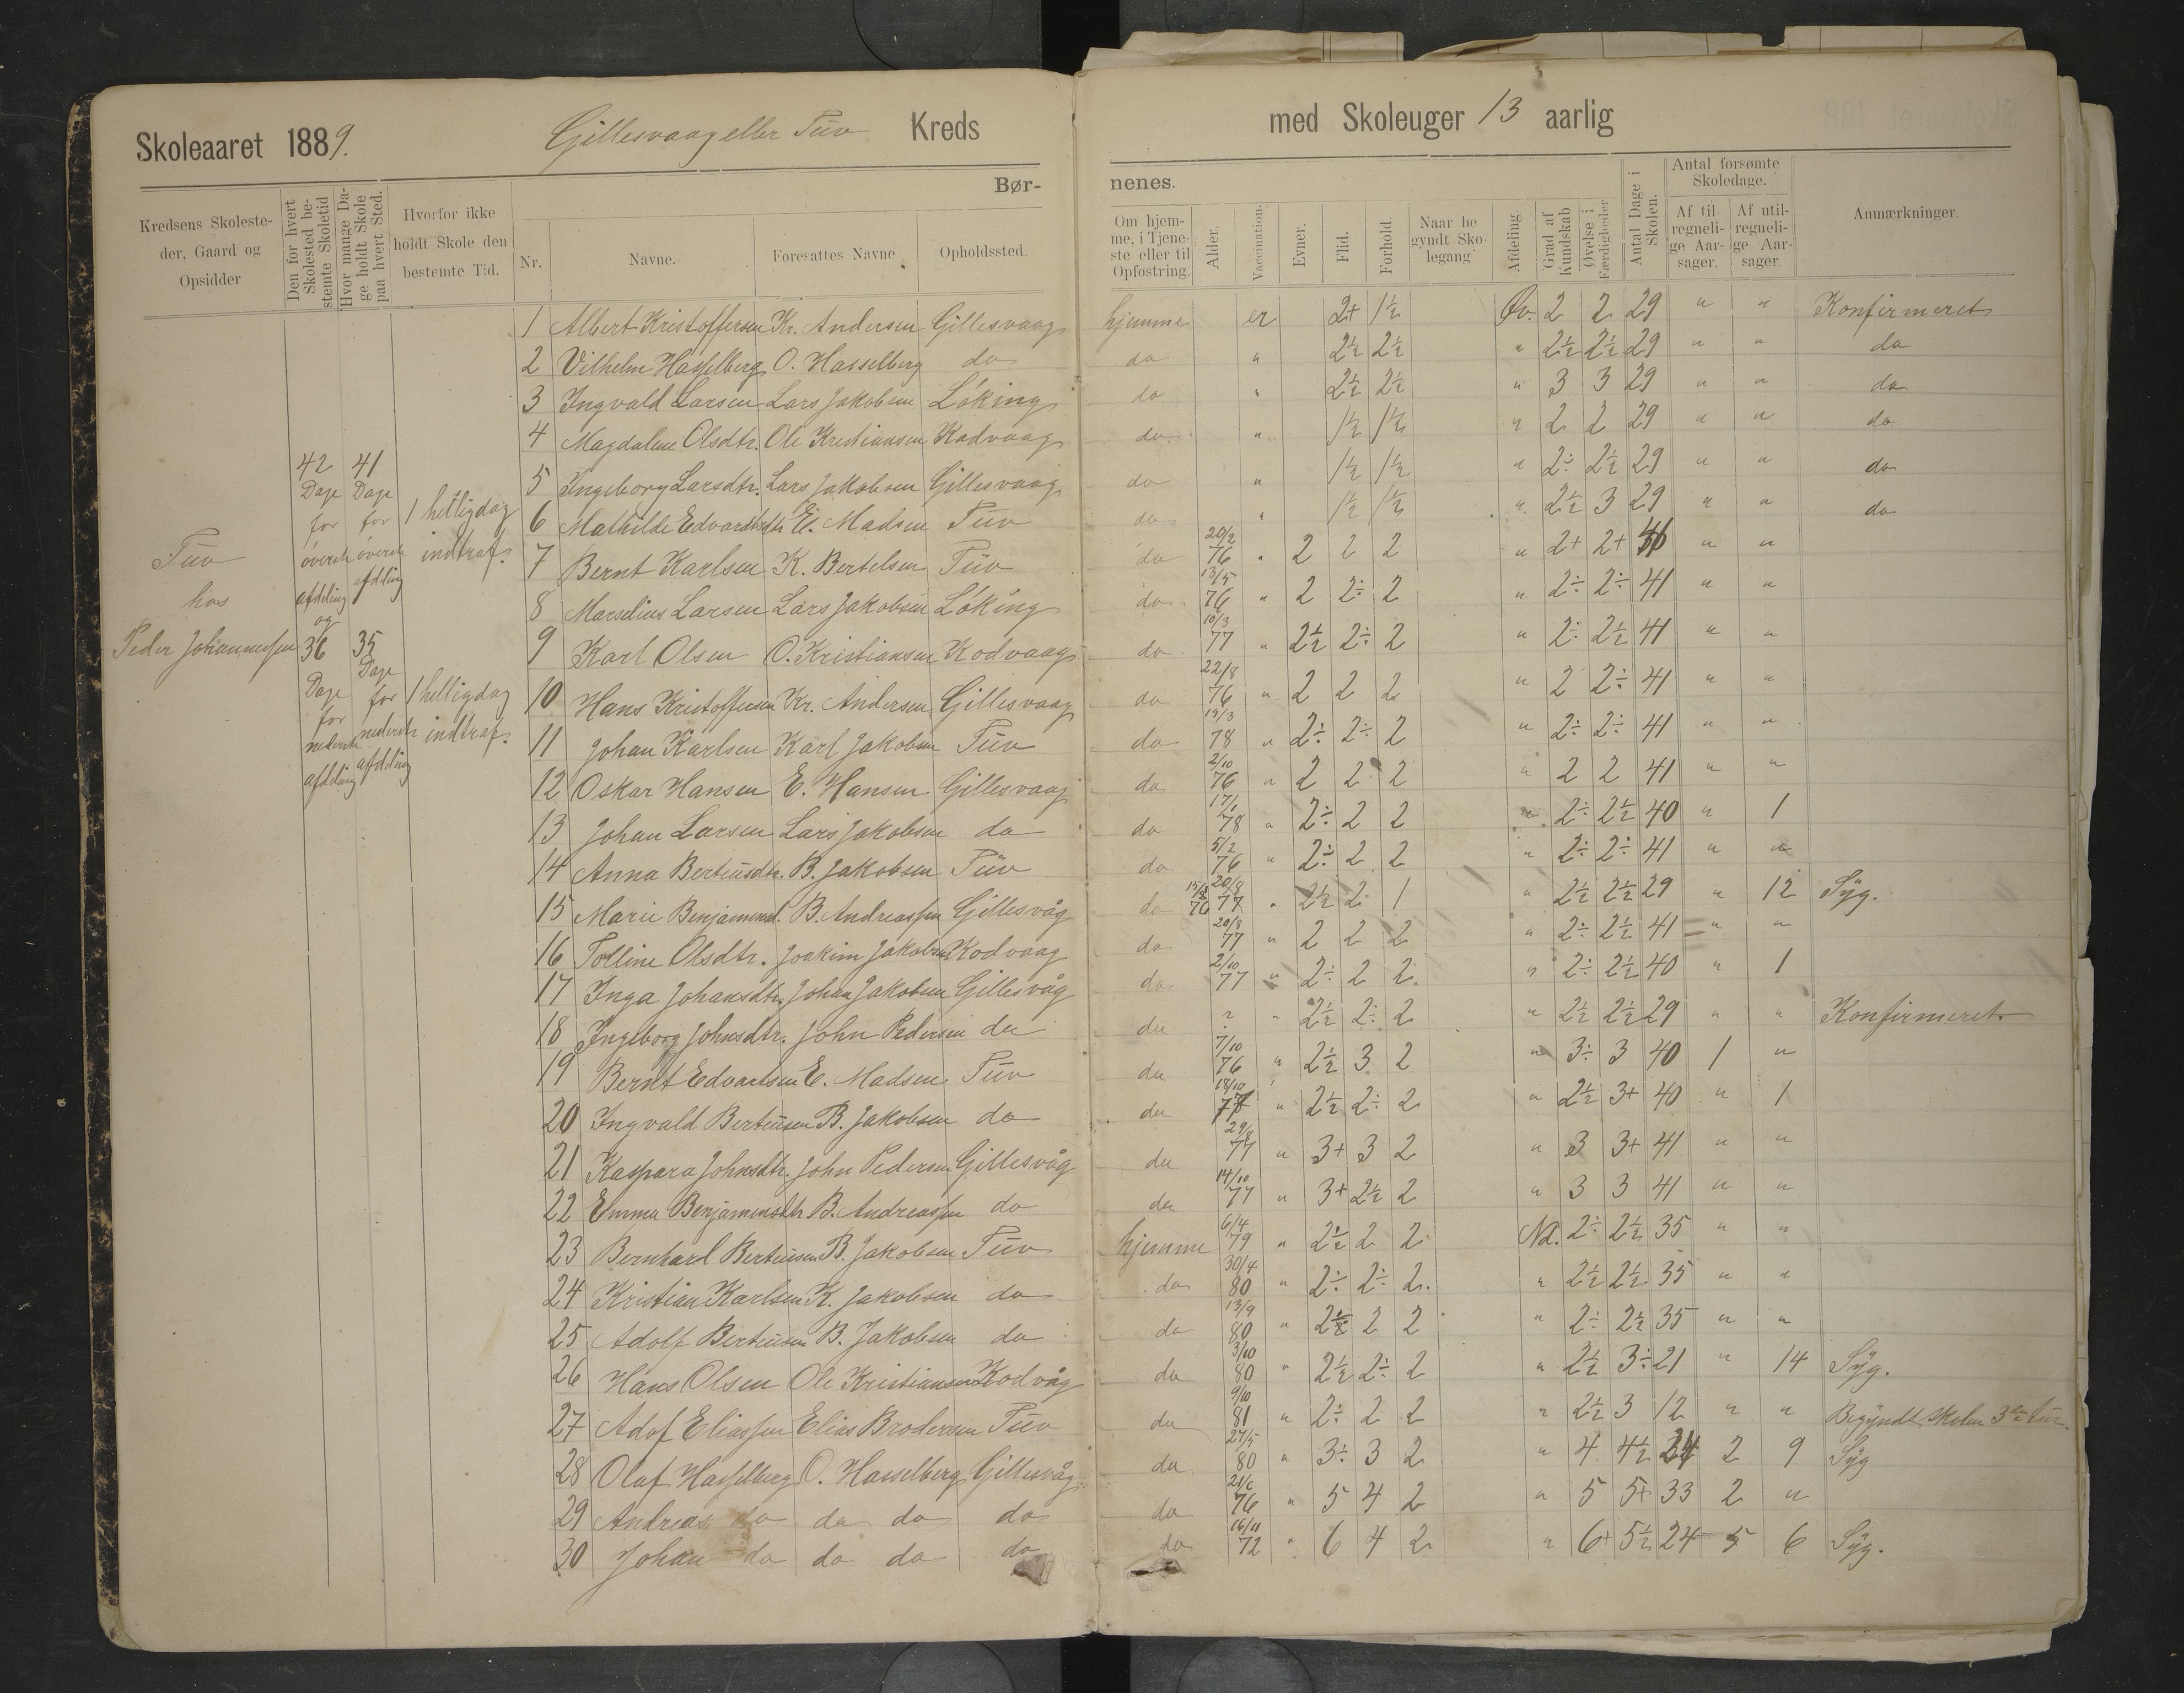 Skoleaaret 1889. Gillesvaag eller Tüv Kreds med Skoleuger 13 aarlig
Kredsens Skolesteder, Gaard og Opsidder
Den for hvert Skolested bestemte Skoletid
Hvor mange Dage holdt Skole paa hvert Sted.
Hvorfor ikke holdt Skole den bestemte Tid.
Børnenes.
Nr. Navne. Foresattes Navne. Opholdssted. Om hjemme, i Tjeneste eller til Opfostring. Alder. Vaccination. Evner. Flid. Forhold. Naar begyndt Skolegang Afdeling Grad af Kundskab Øvelse i Færdigheder Antal Dage i Skolen. Antal forsømte Skoledage. Af tilregnelige Aarsager. Af utilregnelige Aarsager. Anmærkninger.
Tüv
hos
Peder Johannessen
42 Dage for överste afdeling og 36 Dage for nederste afdeling
41 Dage for överste afdeling
35 Dage for nederste afdeling
1 helligdag indtraf.
1 helligdag indtraf.
1 Albert Kristoffersen Kr. Andersen Gillesvaag hjemme er 2+ 1½ Øv. 2 2 29 " " Konfirmeret
2 Vilhelm Hasselberg O. Hasselberg do do " 2½ 2½ " 2½ 2½ 29 " " do
3 Ingvald Larsen Lars Jakobsen Löking do " 2½ 2½ " 3 3 29 " " do
4 Magdalene Olsdtr. Ole Kristiansen Kodvaag do. " 1½ 1½ " 2 2 29 " " do
5 Ingeborg Larsdtr. Lars Jakobsen Gillesvaag do " 1½ 1½ " 2÷ 2½ 29 " " do
6 Mathilde Edvardsdtr E. Madsen Tüv do " 1½ 1½ " 2½ 3 29 " " do
7 Bernt Karlsen K. Bertelsen Tüv do 20/2 76 " 2 2 2 " 2+ 2+ " "
8 Marselius Larsen Lars Jakobsen Löking do. 13/5 76 " 2 2÷ 2 " 2÷ 2÷ 41 " "
9 Karl Olsen O. Kristiansen Kodvaag do 10/3 77 " 2½ 2÷ 2 " 2÷ 2½ 41 " "
10 Hans Kristoffersen Kr. Andersen Gillesvaag do 22/8 76 " 2 2 2 " 2 2÷ 41 " "
11 Johan Karlsen Karl Jakobsen Tüv do 19/3 78 " 2÷ 2÷ 2 " 2÷ 2÷ 41 " "
12 Oskar Hansen E. Hansen Gillesvaag do 2/10 76 " 2 2 2 " 2 2 41 " "
13 Johan Larsen Lars Jakobsen do do 17/1 78 " 2÷ 2 2 " 2÷ 2½ 40 " 1
14 Anna Bertüsdtr. B. Jakobsen Tüv do 5/2 76 " 2÷ 2 2 " 2÷ 2÷ 41 " "
15 Marie Benjaminsd. B. Andreassen Gillesvåg do 76 20/8 77 " 2½ 2 1 " 2½ 2½ 29 " 12 Syg.
16 Tolline Olsdtr. Joakim Jakobsen Kodvaag do 20/8 77 " 2 2 2 " 2÷ 2½ 41 " "
17 Inga Johansdtr. Johan Jakobsen Gillesvåg do 2/10 77 " 2÷ 2 2. " 2÷ 2½ 40 " 1
18 Ingeborg Johnsdtr. John Pedersen do do ? " 2½ 2÷ 2 " 2½ 2½ 29 " " Konfirmeret
19 Bernt Edvardsen E. Madsen Tüv do 7/10 76 " 2½ 3 2 " 3÷ 3 40 1 "
20 Ingvald Bertüsen B. Jakobsen do do 18/10 " 2½ 2÷ 2 " 2½ 3+ 40 " 1
21 Kaspara Johnsdtr. John Pedersen Gillesvåg do 77 " 3+ 3 2 " 3 3+ 41 " "
22 Emma Benjaminsdtr B. Andreassen do do 14/10 77 " 3+ 2½ 2 " 3 3 41 " "
23 Bernhard Bertüsen B. Jakobsen Tüv hjemme 6/4 79 " 2½ 2 2 Nd. 2÷ 2½ 35 " "
24 Kristian Karlsen K. Jakobsen do do 30/4 80 " 2÷ 2÷ 2. " 2½ 2½ 35 " "
25 Adolf Bertüsen B. Jakobsen do do 13/9 80 " 2 2 " 2÷ 2½ 35 " "
26 Hans Olsen Ole Kristiansen Kodvåg do 3/10 80 " 2½ 2÷ 2 " 2½ 3÷ 21 " 14 Syg.
27 Adof Eliassen Elias Brodersen Tüv do 9/10 81 " 2÷ 2 2 " 2½ 3 12 " " Begyndt skolen 3die tür
28 Olaf Hasselberg O. Hasselberg Gillesvåg do 27/5 80 " 3÷ 3 2 " 4 4½ 24 2 9 Syg
29 Andreas do do do do do 21/6 76 " 5 4 2 " 5 5+ 33 2 "
30 Johan do do do do do 16/11 72 " 6 4 2 " 6+ 5½ 24 5 6 Syg.